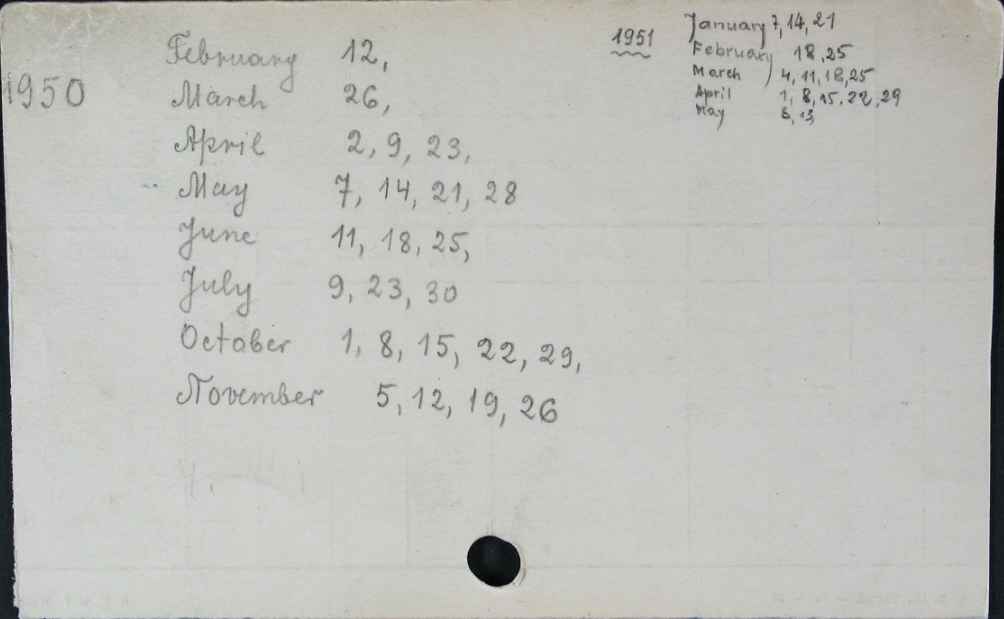 1950
February 12,
March 26,
April 2, 9, 23,
May 7, 14, 21, 28
June 11, 18, 25,
July 9, 23, 30
October 1, 8, 15, 22, 29,
November 5, 12, 19, 26
1951
January 7, 14, 21
February 18, 25
March 4, 11, 18, 25
April 1, 8, 15, 22, 29
May 6, 13